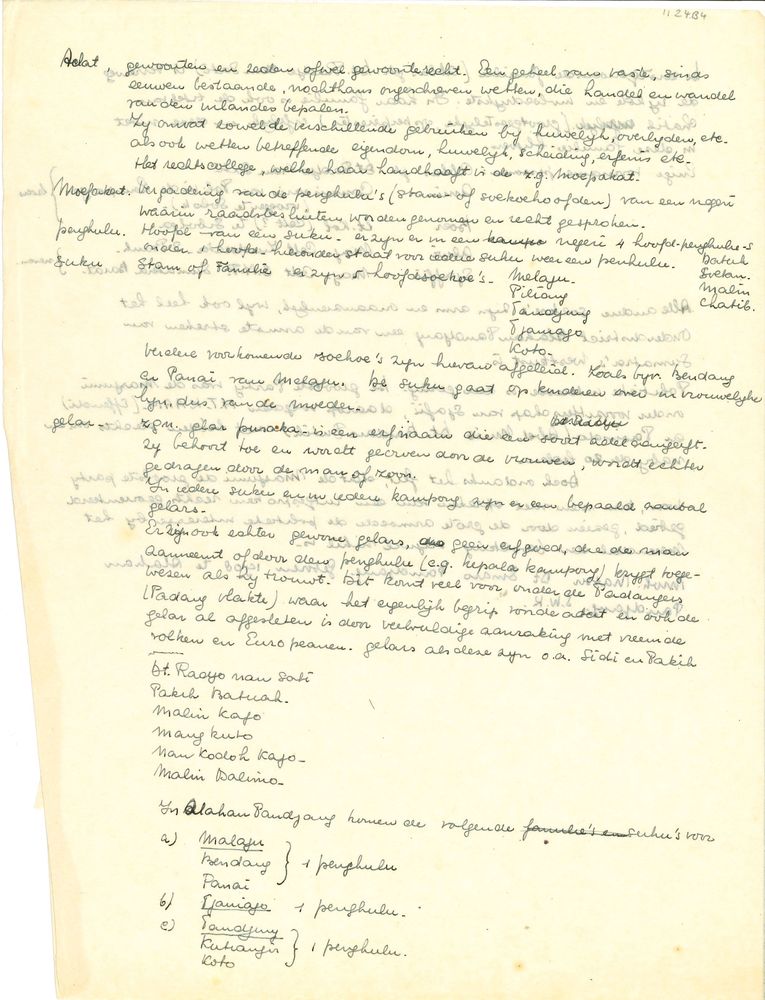 11 24B4
Adat, gewoonten en zeden ofwel gewoonterecht. Een geheel van vaste, sinds
eeuwen bestaande, nochthans ongeschreven wetten, die handel en wandel
van den inlander bepalen.
Zy omvat zowel de verschillende gebruiken by huwelyk, overlyden, etc.
als ook wetten betreffende eigendom, huwelyk, scheiding, erfenis etc.
Het rechtscollege, welke haar handhaaft is de z.g. Moepakat.
Moepakat. Vergadering van de penghulu's (stam- of soekoehoofden) van een negeri
waarin raadsbesluiten worden genomen en recht gesproken.
penghulu. Hoofd van een suku. er zyn er in een kampo negeri 4 hoofd-penghulu-s
onder 1 hoofd. hieronder staat voor iedere suku weer een penhulu.
Datuk
Soetan.
Malin
Chatib.
Suku Stam of Familie er zyn 5 hoofdsoekoe's. Melaju.
Piliang
Tandjung
Tjaniago
Koto.
Verdere voorkomende soekoe's zyn hiervan afgeleid. Zoals byv. Bendang
en Panai van Melaju. De suku gaat op kinderen over in vrouwelyke
lyn, dus van de moeder.
gelar. zgn. gelar pusaka is een erfnaam die een soort adel aangeeft.
Zy behoort toe en wordt gegeven door de vrouwen, wordt echter
gedragen door de man of zoon.
In iedere suku en in iedere kampong zyn er een bepaald aantal
gelars.
Er zyn ook echter gewone gelars, geen erfgoed, die de man
aanneemt of door den penghulu (c.q. kepala kampong) krygt toege-
wezen als hy trouwt. Dit komt veel voor, onder de Padangers
(Padang vlakte) waar het eigenlyk begrip van de adat en ook de
gelar al afgesleten is door veelvuldige aanraking met vreemde
volken en Europeanen. gelars als deze zyn o.a. Sidi en Pakih
Dt. Radyo nan Sati
Pakih Batuah.
Malin Kajo
Mangkuto
Nan Kodoh Kajo.
Malin Dalimo.
In Alahan Pandjang komen de volgende familie's en suku's voor
a) Malaju
Bendang } 1 penghulu
Panai
b) Tjaniago 1 penghulu.
c) Tandjung
Kutianjir } 1 penghulu.
Koto